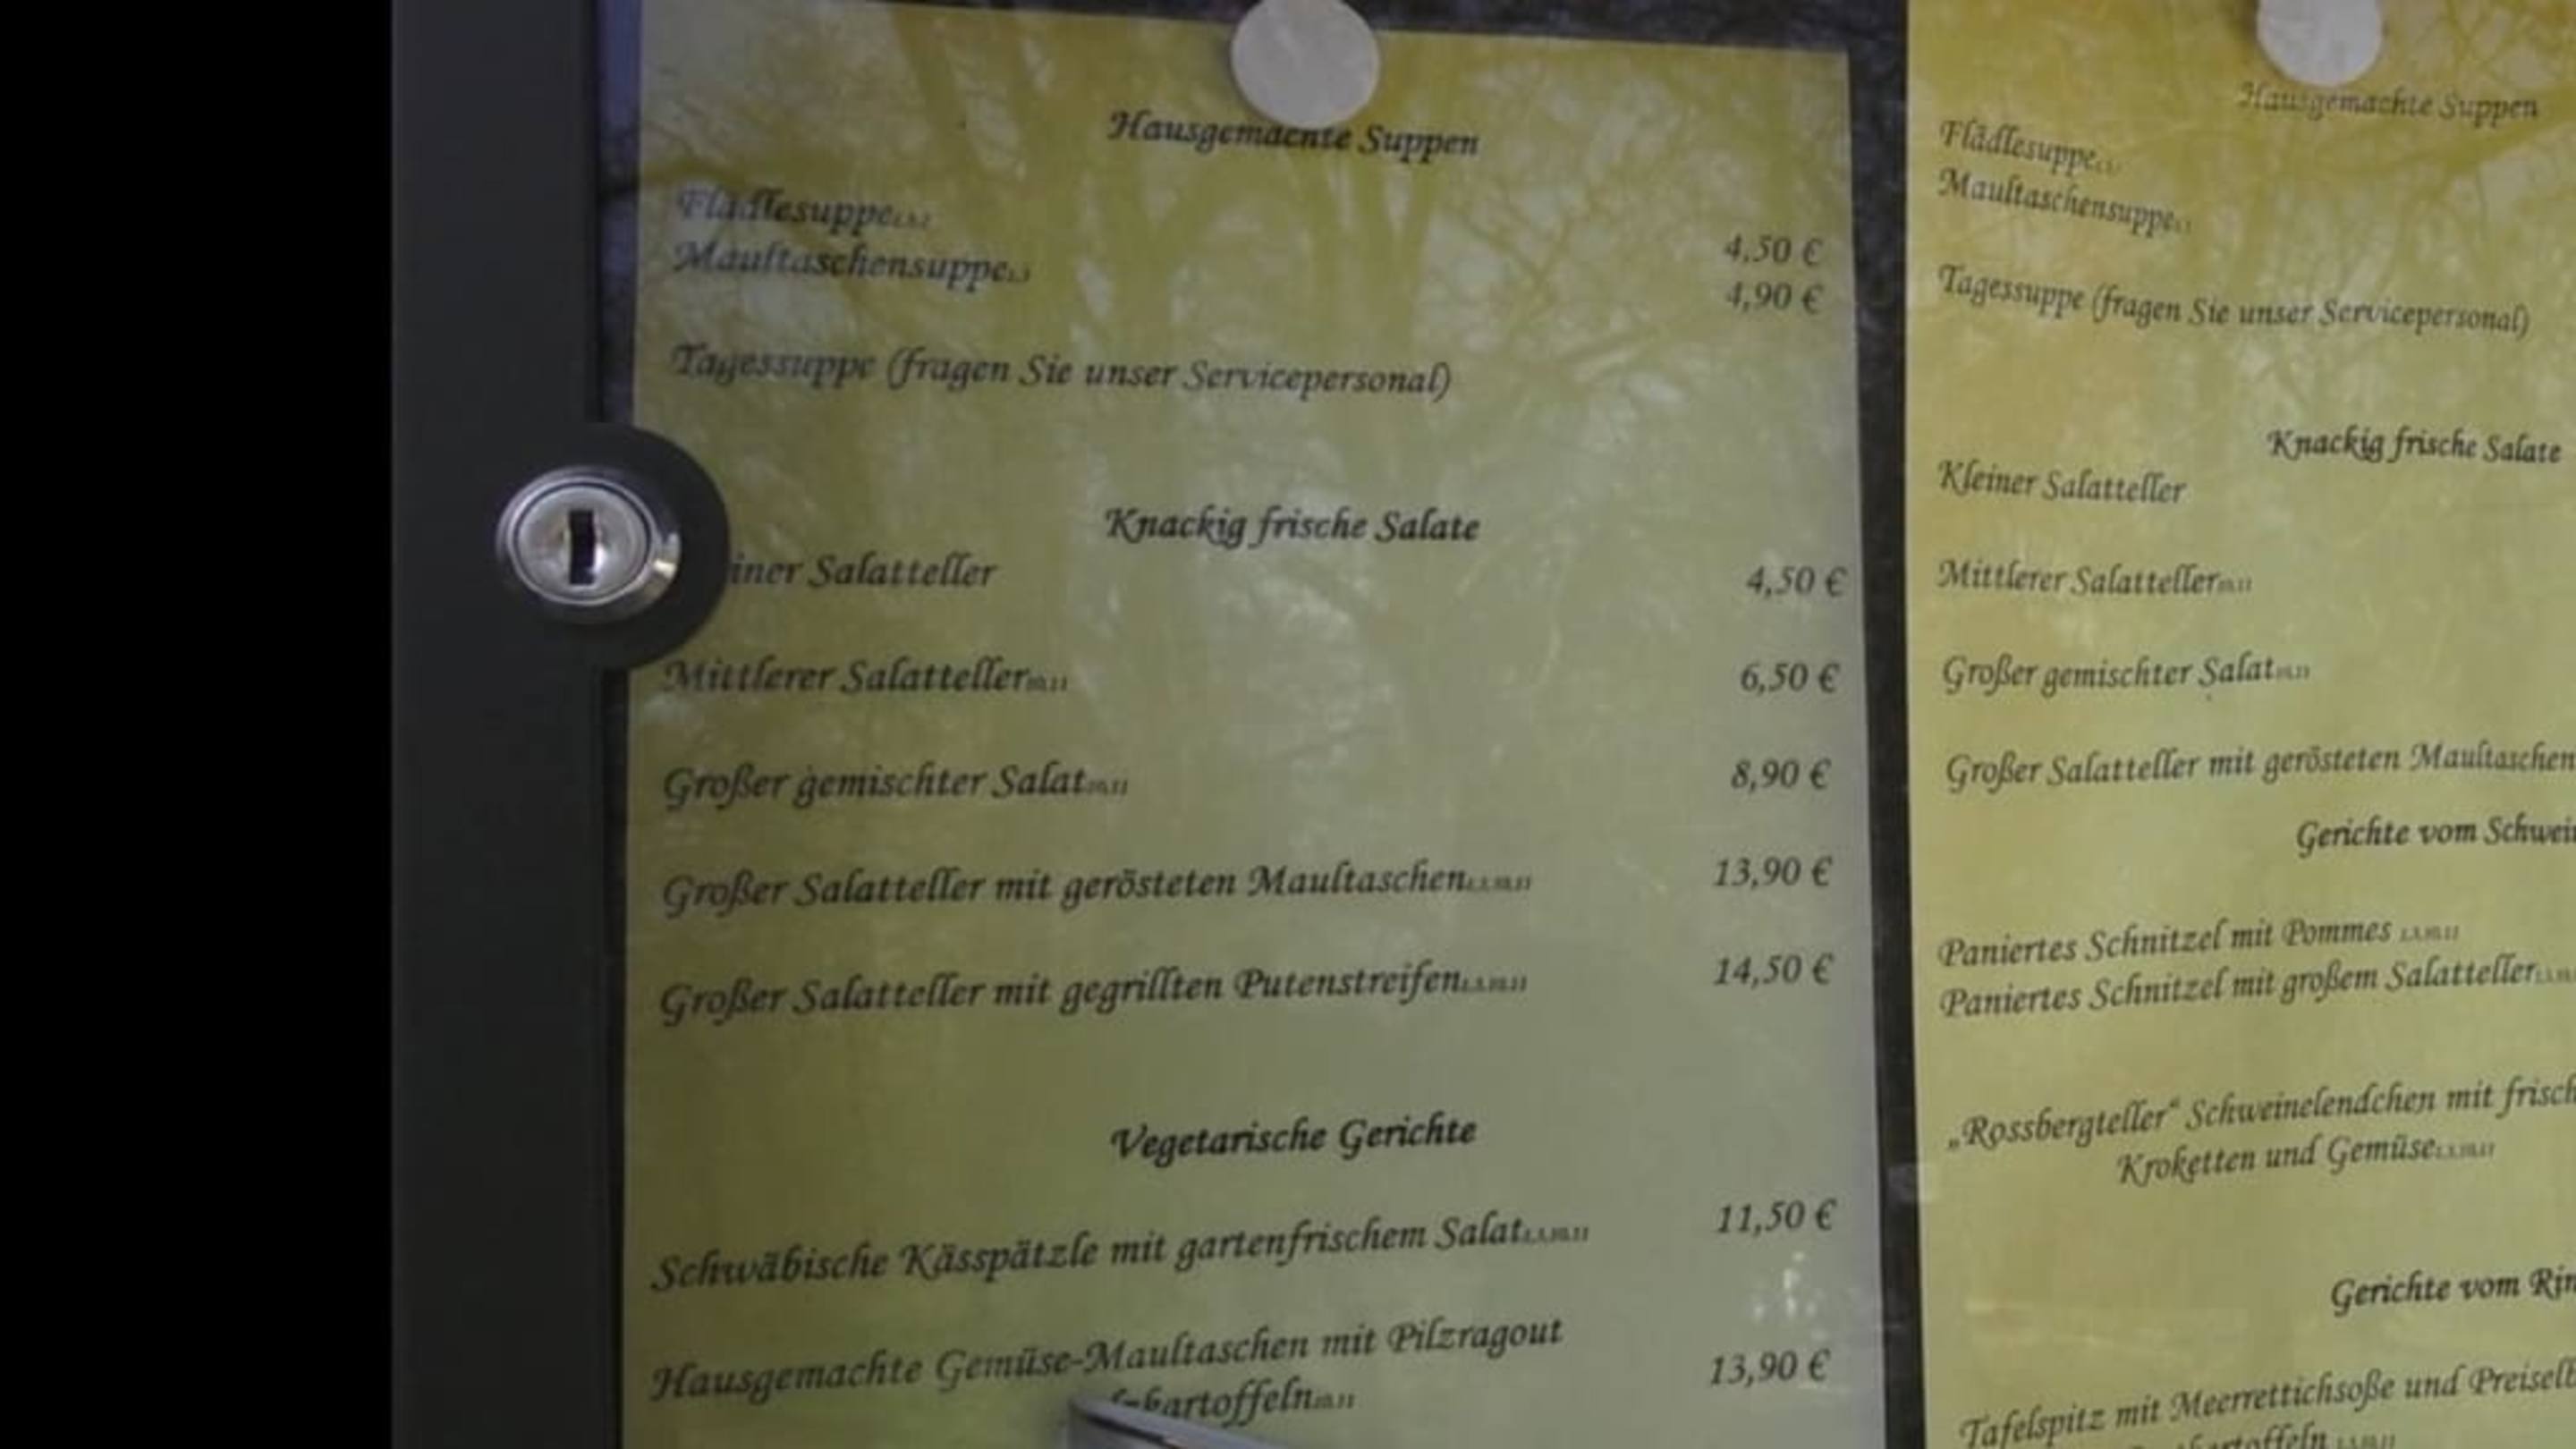 Hausgemachte Suppen
Flädlesuppe
4,50 €
Maultaschensuppe
4,90 €
Tagessuppe (fragen Sie unser Servicepersonal)
Knackig frische Salate
iner Salatteller 4,50 €
Mittlerer Salatteller 6,50 €
Großer gemischter Salat 8,90 €
Großer Salatteller mit gerösteten Maultaschen 13,90 €
Großer Salatteller mit gegrillten Putenstreifen 14,50 €
Vegetarische Gerichte
Schwäbische Kässpätzle mit gartenfrischem Salat 11,50 €
Hausgemachte Gemüse-Maultaschen mit Pilzragout 13,90 €
kartoffeln
Hausgemachte Suppen
Flädlesuppe
Maultaschensuppe
Tagessuppe (fragen Sie unser Servicepersonal)
Knackig frische Salate
Kleiner Salatteller
Mittlerer Salatteller
Großer gemischter Salat
Großer Salatteller mit gerösteten Maultaschen
Gerichte vom Schwei
Paniertes Schnitzel mit Pommes
Paniertes Schnitzel mit großem Salatteller
„Rossbergteller“ Schweinelendchen mit frisch
Kroketten und Gemüse
Gerichte vom Rin
Tafelspitz mit Meerrettichsoße und Preiselb